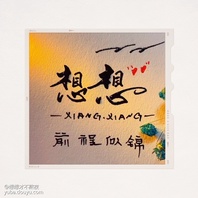 想想
XIANG·XIANG
前程似锦
yuba.douyu.com